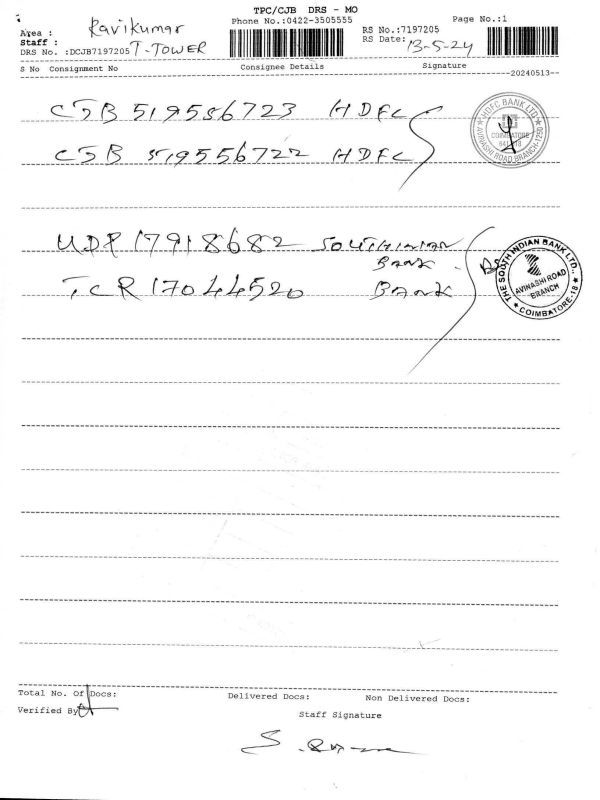 TPC/CJB DRS - MO
Phone No.:0422-3505555
Page No.:1
Area : Ravikumar
Staff :
RS No.:7197205
RS Date: 13-5-24
DRS No. :DCJB7197205 T-TOWER
S No Consignment No Consignee Details Signature
--20240513--
CJB 519556723 HDFC
HDFC BANK LTD
COIMBATORE
AVINASHI ROAD BRANCH-1250
CJB 519556722 HDFC
UDP 17918682 SOUTHINIAN
BANK
TCR 17044520 BANK
THE SOUTH INDIAN BANK LTD.,
AVINASHI ROAD
BRANCH
COIMBATORE-18
Total No. Of Docs: Delivered Docs: Non Delivered Docs:
Verified By
Staff Signature